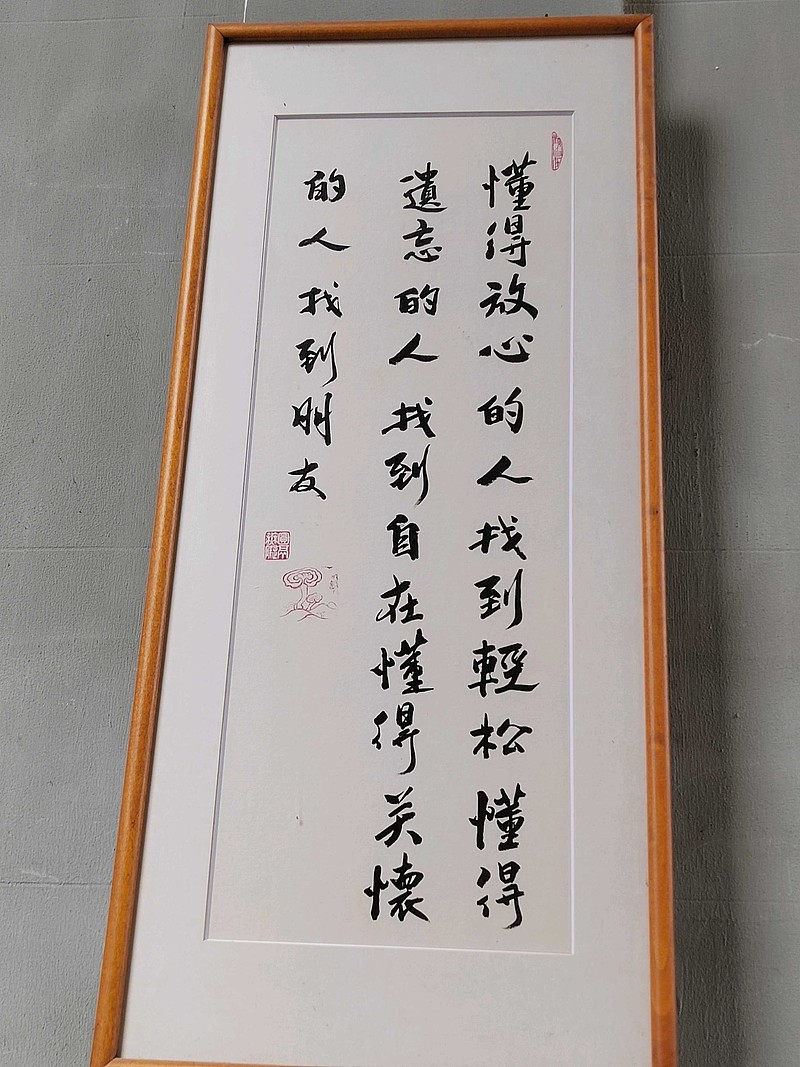 懂得放心的人找到輕松懂得
遺忘的人找到自在懂得关懷
的人找到朋友